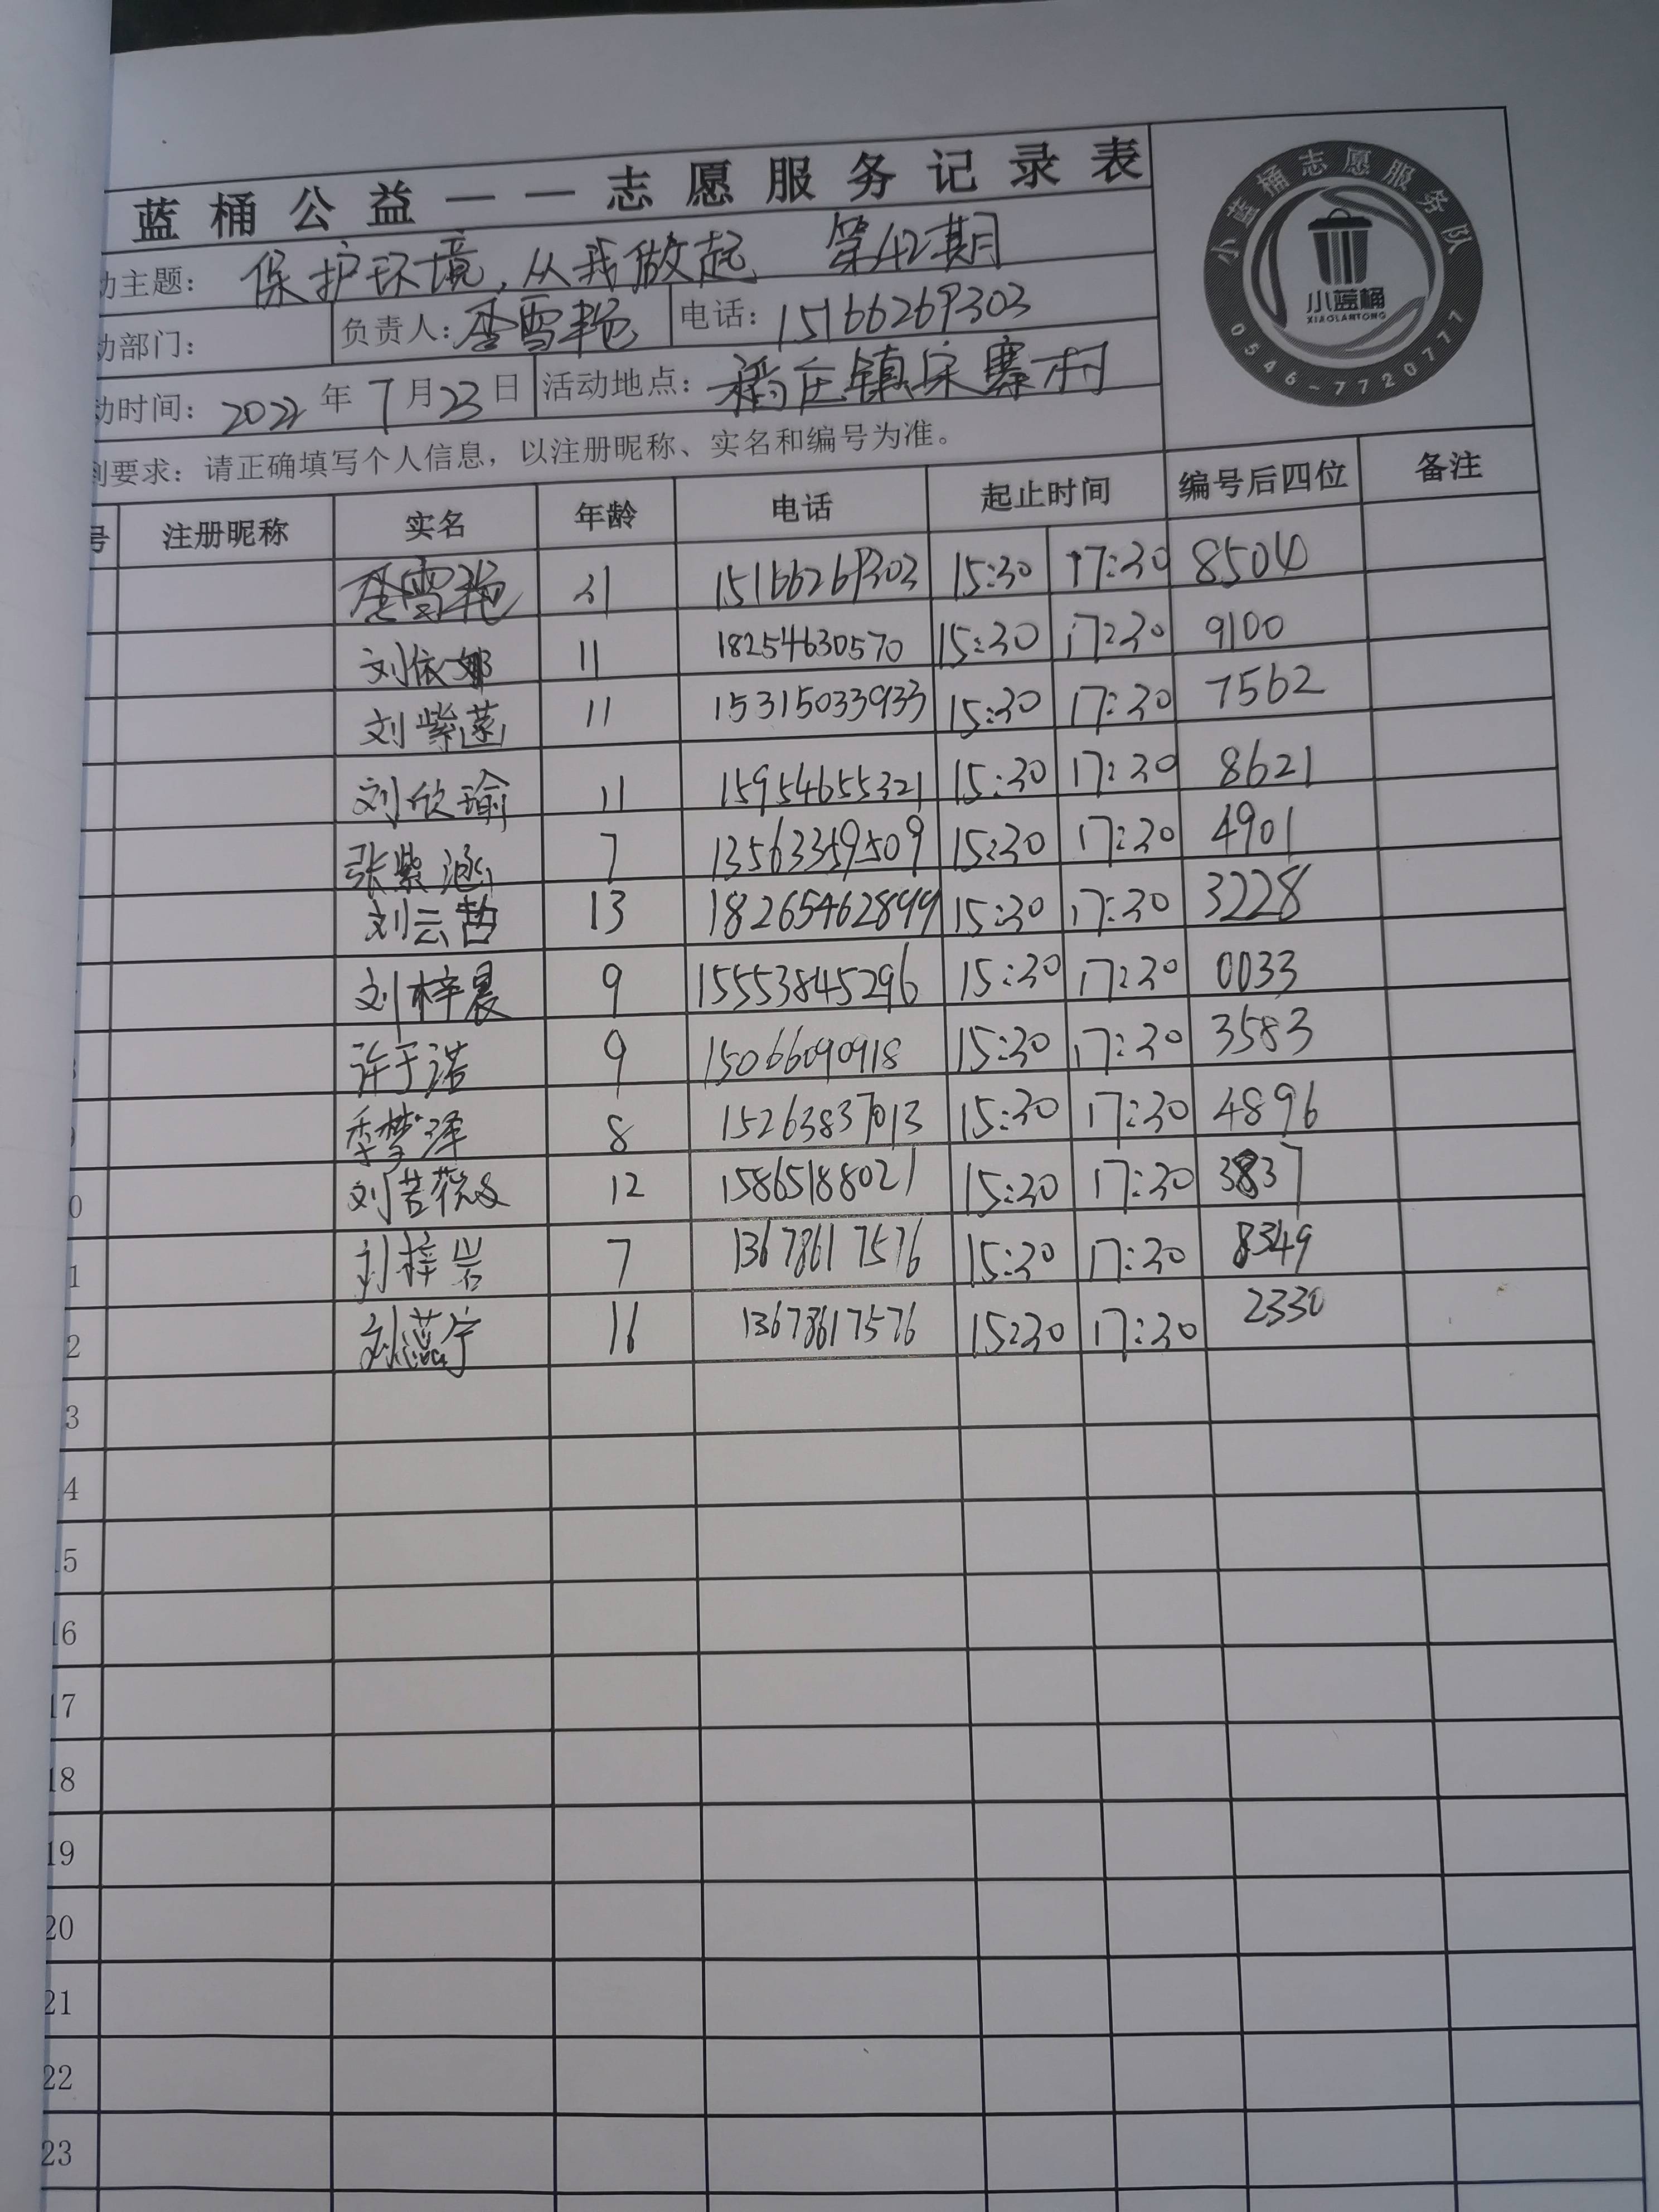 蓝桶公益——志愿服务记录表
小蓝桶志愿服务队
小蓝桶
XIAOLANTONG
0546-7720777
动主题: 保护环境,从我做起 第42期
动部门: 负责人: 李雪艳 电话: 15166269303
动时间: 2022 年 7 月 23 日 活动地点: 稻庄镇宋寨村
到要求: 请正确填写个人信息, 以注册昵称、实名和编号为准。
号 注册昵称 实名 年龄 电话 起止时间 编号后四位 备注
李雪艳 21 15166269303 15:30 17:30 8504
刘依娜 11 18254630570 15:30 17:30 9100
刘紫莲 11 15315033933 15:30 17:30 7562
刘欣瑜 11 15954655321 15:30 17:30 8621
张紫涵 7 13563359509 15:30 17:30 4901
刘云哲 13 18265462899 15:30 17:30 3228
刘梓晨 9 15553845296 15:30 17:30 0033
许于诺 9 15066090918 15:30 17:30 3583
季梦泽 8 15263837013 15:30 17:30 4896
0 12 15865188021 15:30 17:30 3837
1 刘梓岩 7 13678617576 15:30 17:30 8349
2 刘蕊宁 16 13678617576 15:30 17:30 2330
3
4
15
16
17
18
19
20
21
22
23